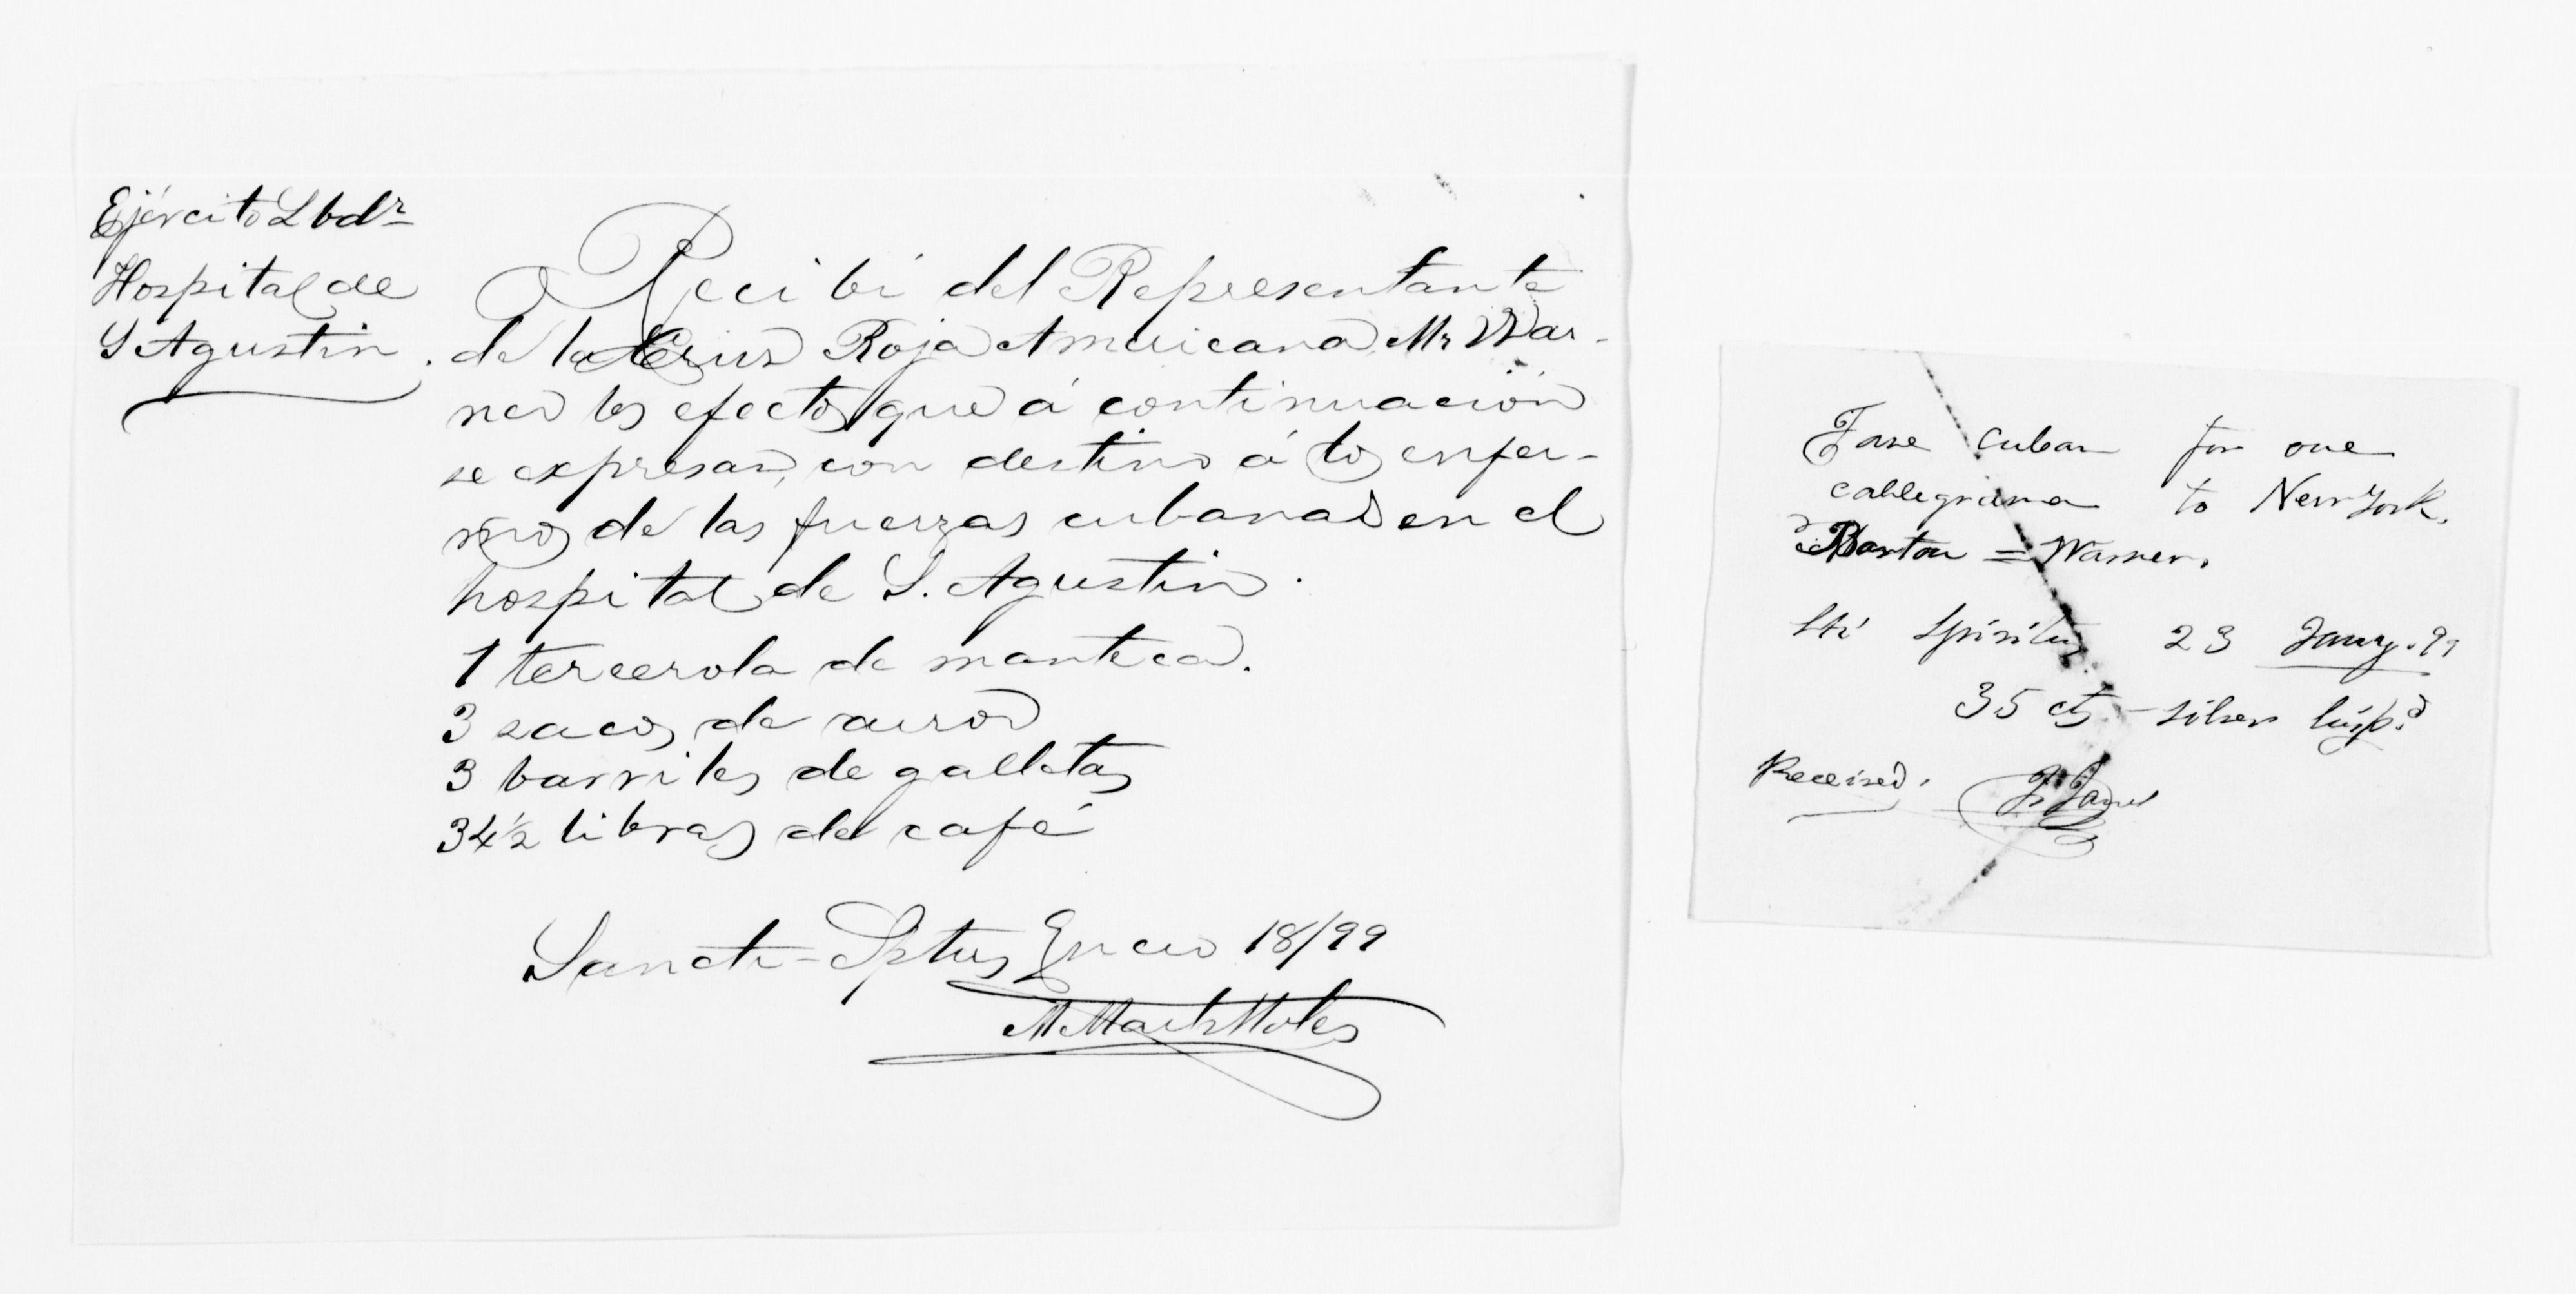 Ejército Lbdr
Hospital de
S Agustin.
Recibí del Representante
de la Cruz Roja Americana Mr War-
ner los efectos que á continuación
se expresan, con destino á los enfer-
mos de las fuerzas cubanas en el
hospital de S. Agustin.
1 tercerola de manteca.
3 sacos de arroz
3 barriles de galletas
34½ libras de café
Sancti-Sptus Enero 18/99
Taxe cuban for one
cablegrama to New York.
Barton = Warner.
Sti Spiritus 23 Jany. 99
35 cts silver
Received.